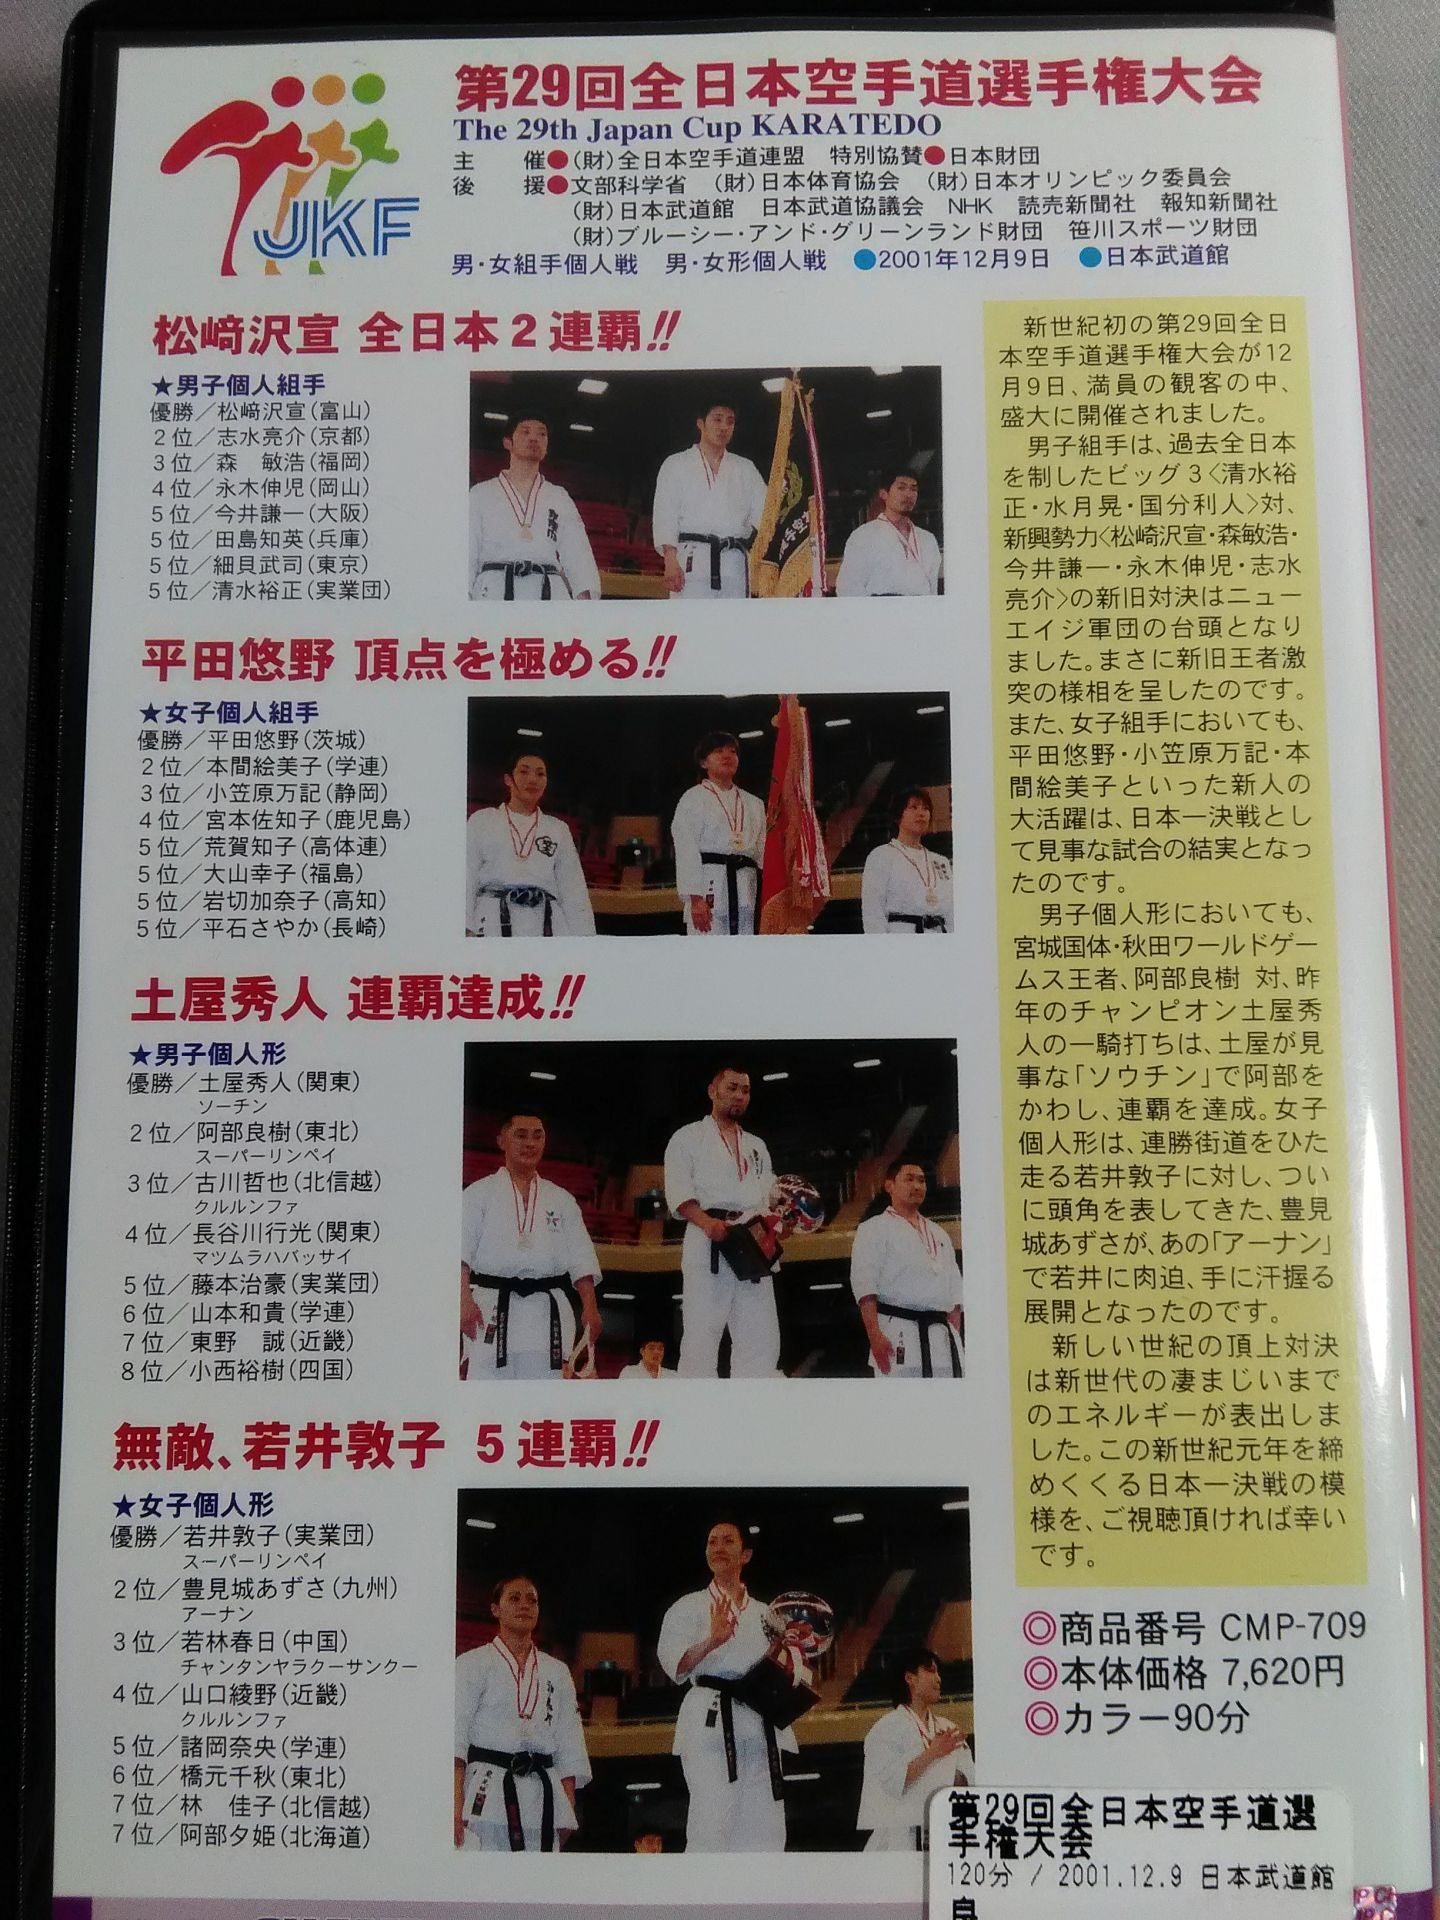 JKF
第29回全日本空手道選手権大会
The 29th Japan Cup KARATEDO
主 催●(財)全日本空手道連盟 特別協賛●日本財団
後 援●文部科学省 (財)日本体育協会 (財)日本オリンピック委員会
(財)日本武道館 日本武道協議会 NHK 読売新聞社 報知新聞社
(財)ブルーシー・アンド・グリーンランド財団 笹川スポーツ財団
男・女組手個人戦 男・女形個人戦 ●2001年12月9日 ●日本武道館
松﨑沢宣 全日本2連覇!!
★男子個人組手
優勝/松﨑沢宣(富山)
2位/志水亮介(京都)
3位/森 敏浩(福岡)
4位/永木伸児(岡山)
5位/今井謙一(大阪)
5位/田島知英(兵庫)
5位/細貝武司(東京)
5位/清水裕正(実業団)
平田悠野 頂点を極める!!
★女子個人組手
優勝/平田悠野(茨城)
2位/本間絵美子(学連)
3位/小笠原万記(静岡)
4位/宮本佐知子(鹿児島)
5位/荒賀知子(高体連)
5位/大山幸子(福島)
5位/岩切加奈子(高知)
5位/平石さやか(長崎)
土屋秀人 連覇達成!!
★男子個人形
優勝/土屋秀人(関東)
ソーチン
2位/阿部良樹(東北)
スーパーリンペイ
3位/古川哲也(北信越)
クルルンファ
4位/長谷川行光(関東)
マツムラハバッサイ
5位/藤本治豪(実業団)
6位/山本和貴(学連)
7位/東野 誠(近畿)
8位/小西裕樹(四国)
無敵、若井敦子 5連覇!!
★女子個人形
優勝/若井敦子(実業団)
スーパーリンペイ
2位/豊見城あずさ(九州)
アーナン
3位/若林春日(中国)
チャンタンヤラクーサンクー
4位/山口綾野(近畿)
クルルンファ
5位/諸岡奈央(学連)
6位/橋元千秋(東北)
7位/林 佳子(北信越)
7位/阿部夕姫(北海道)
新世紀初の第29回全日
本空手道選手権大会が12
月9日、満員の観客の中、
盛大に開催されました。
男子組手は、過去全日本
を制したビッグ3〈清水裕
正・水月晃・国分利人〉対、
新興勢力〈松崎沢宣・森敏浩・
今井謙一・永木伸児・志水
亮介〉の新旧対決はニュー
エイジ軍団の台頭となり
ました。まさに新旧王者激
突の様相を呈したのです。
また、女子組手においても、
平田悠野・小笠原万記・本
間絵美子といった新人の
大活躍は、日本一決戦とし
て見事な試合の結実となっ
たのです。
男子個人形においても、
宮城国体・秋田ワールドゲー
ムス王者、阿部良樹 対、昨
年のチャンピオン土屋秀
人の一騎打ちは、土屋が見
事な「ソウチン」で阿部を
かわし、連覇を達成。女子
個人形は、連勝街道をひた
走る若井敦子に対し、つい
に頭角を表してきた、豊見
城あずさが、あの「アーナン」
で若井に肉迫、手に汗握る
展開となったのです。
新しい世紀の頂上対決
は新世代の凄まじいまで
のエネルギーが表出しま
した。この新世紀元年を締
めくくる日本一決戦の模
様を、ご視聴頂ければ幸い
です。
◎商品番号 CMP-709
◎本体価格 7,620円
◎カラー90分
第29回全日本空手道選
手権大会
120分 / 2001.12.9 日本武道館